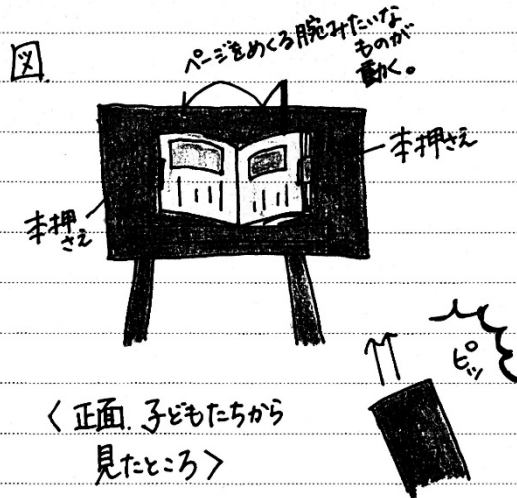 図
ページをめくる腕みたいな
ものが
動く。
本押さえ
本押
さえ
ピッ
〈正面.子どもたちから
見たところ〉